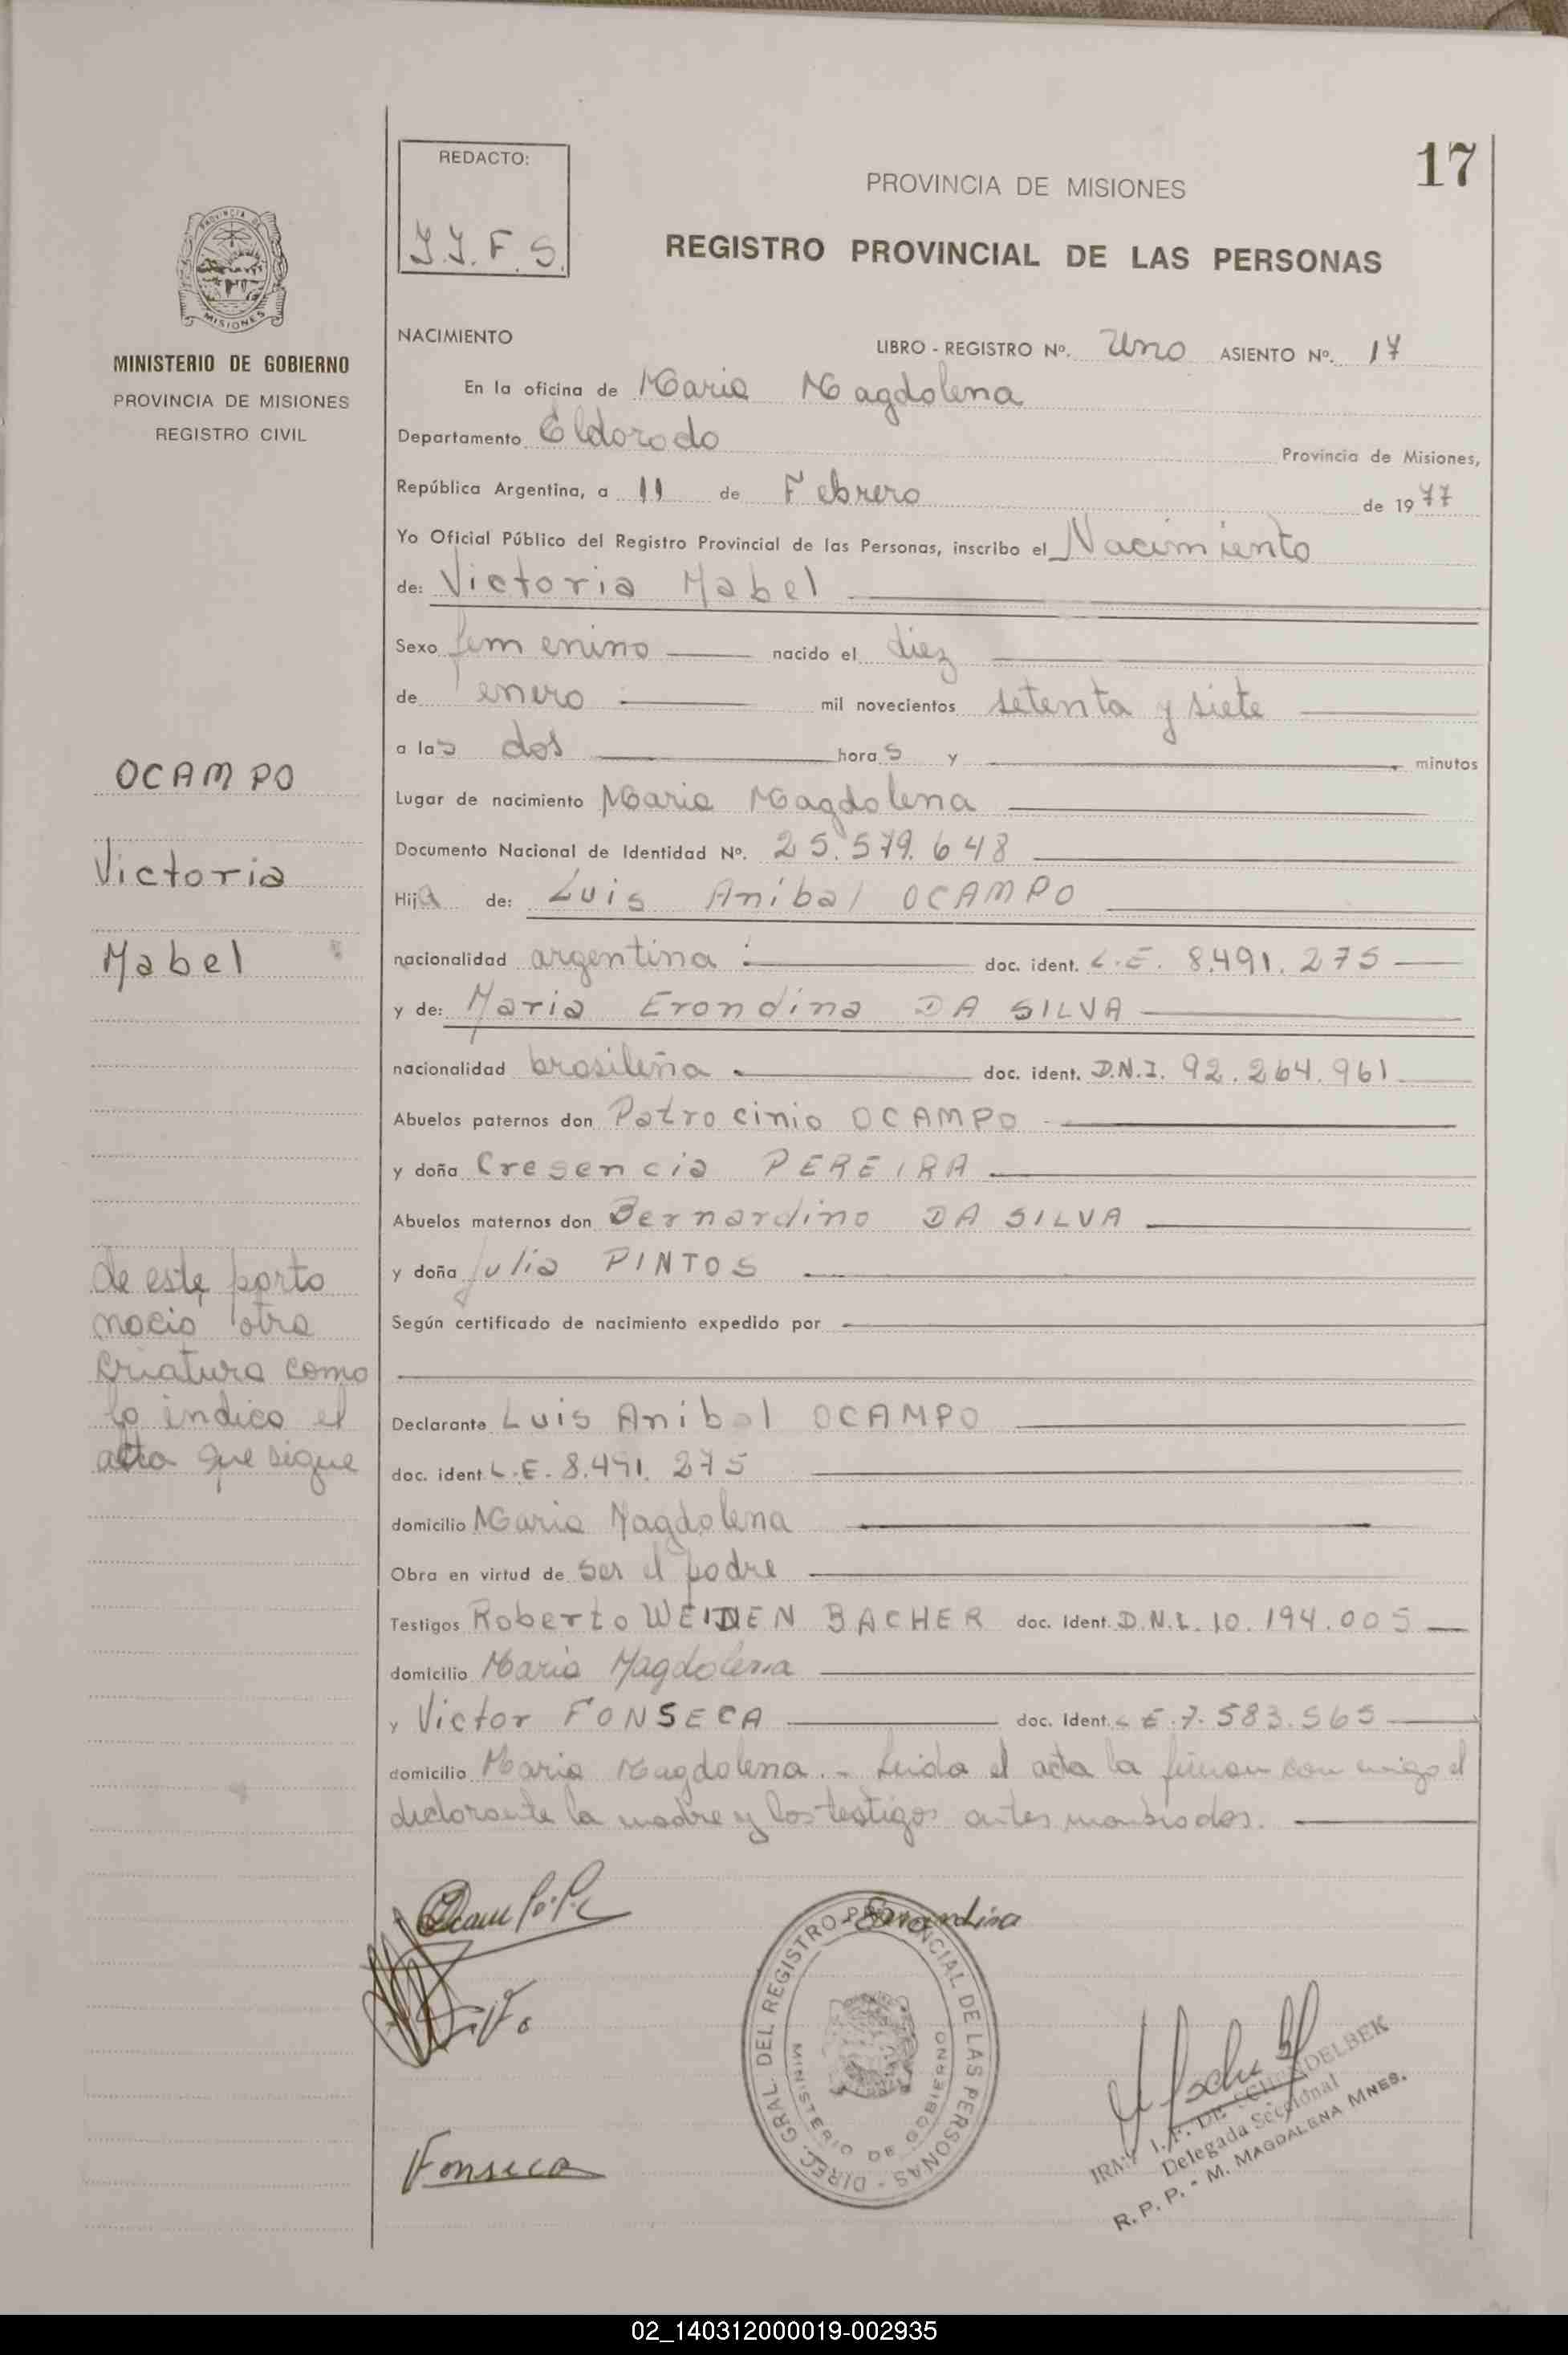 17
REDACTO:
PROVINCIA DE MISIONES
J.J.F.S.
REGISTRO PROVINCIAL DE LAS PERSONAS
PROVINCIA DE
MISIONES
MINISTERIO DE GOBIERNO
PROVINCIA DE MISIONES
REGISTRO CIVIL
OCAMPO
Victoria
Mabel
de este parto
nació otra
criatura como
lo indica el
acta que sigue
NACIMIENTO
LIBRO - REGISTRO Nº. Uno ASIENTO Nº. 17
En la oficina de Maria Magdalena
Departamento Eldorado Provincia de Misiones,
República Argentina, a 11 de Febrero de 1977
Yo Oficial Público del Registro Provincial de las Personas, inscribo el Nacimiento
de: Victoria Mabel
Sexo femenino nacido el diez
de enero mil novecientos setenta y siete
a las dos horas y minutos
Lugar de nacimiento Maria Magdalena
Documento Nacional de Identidad Nº. 25.579.648
Hija de: Luis Aníbal OCAMPO
nacionalidad argentina doc. ident. L.E. 8.491.275
y de: Maria Erondina DA SILVA
nacionalidad brasileña doc. ident. D.N.I. 92.264.961
Abuelos paternos don Patrocinio OCAMPO
y doña Cresencia PEREIRA
Abuelos maternos don Bernardino DA SILVA
y doña Julia PINTOS
Según certificado de nacimiento expedido por
Declarante Luis Anibal OCAMPO
doc. ident L.E. 8.491.275
domicilio Maria Magdalena
Obra en virtud de ser el padre
Testigos Roberto WEIDEN BACHER doc. Ident. D.N.I. 10.194.005
domicilio Maria Magdalena
y Victor FONSECA doc. Ident. L E.7.583.565
domicilio Maria Magdalena.- Leida el acta la firman con migo el
declarante la madre y los testigos antes
Erondina
DIREC. GRAL. DEL REGISTRO PROVINCIAL DE LAS PERSONAS -
MINISTERIO DE GOBIERNO
Fonseca
I. F. DE SCHENDELBEK
Delegada Seccional
R. P. P. - M. MAGDALENA MNES.
02_140312000019-002935